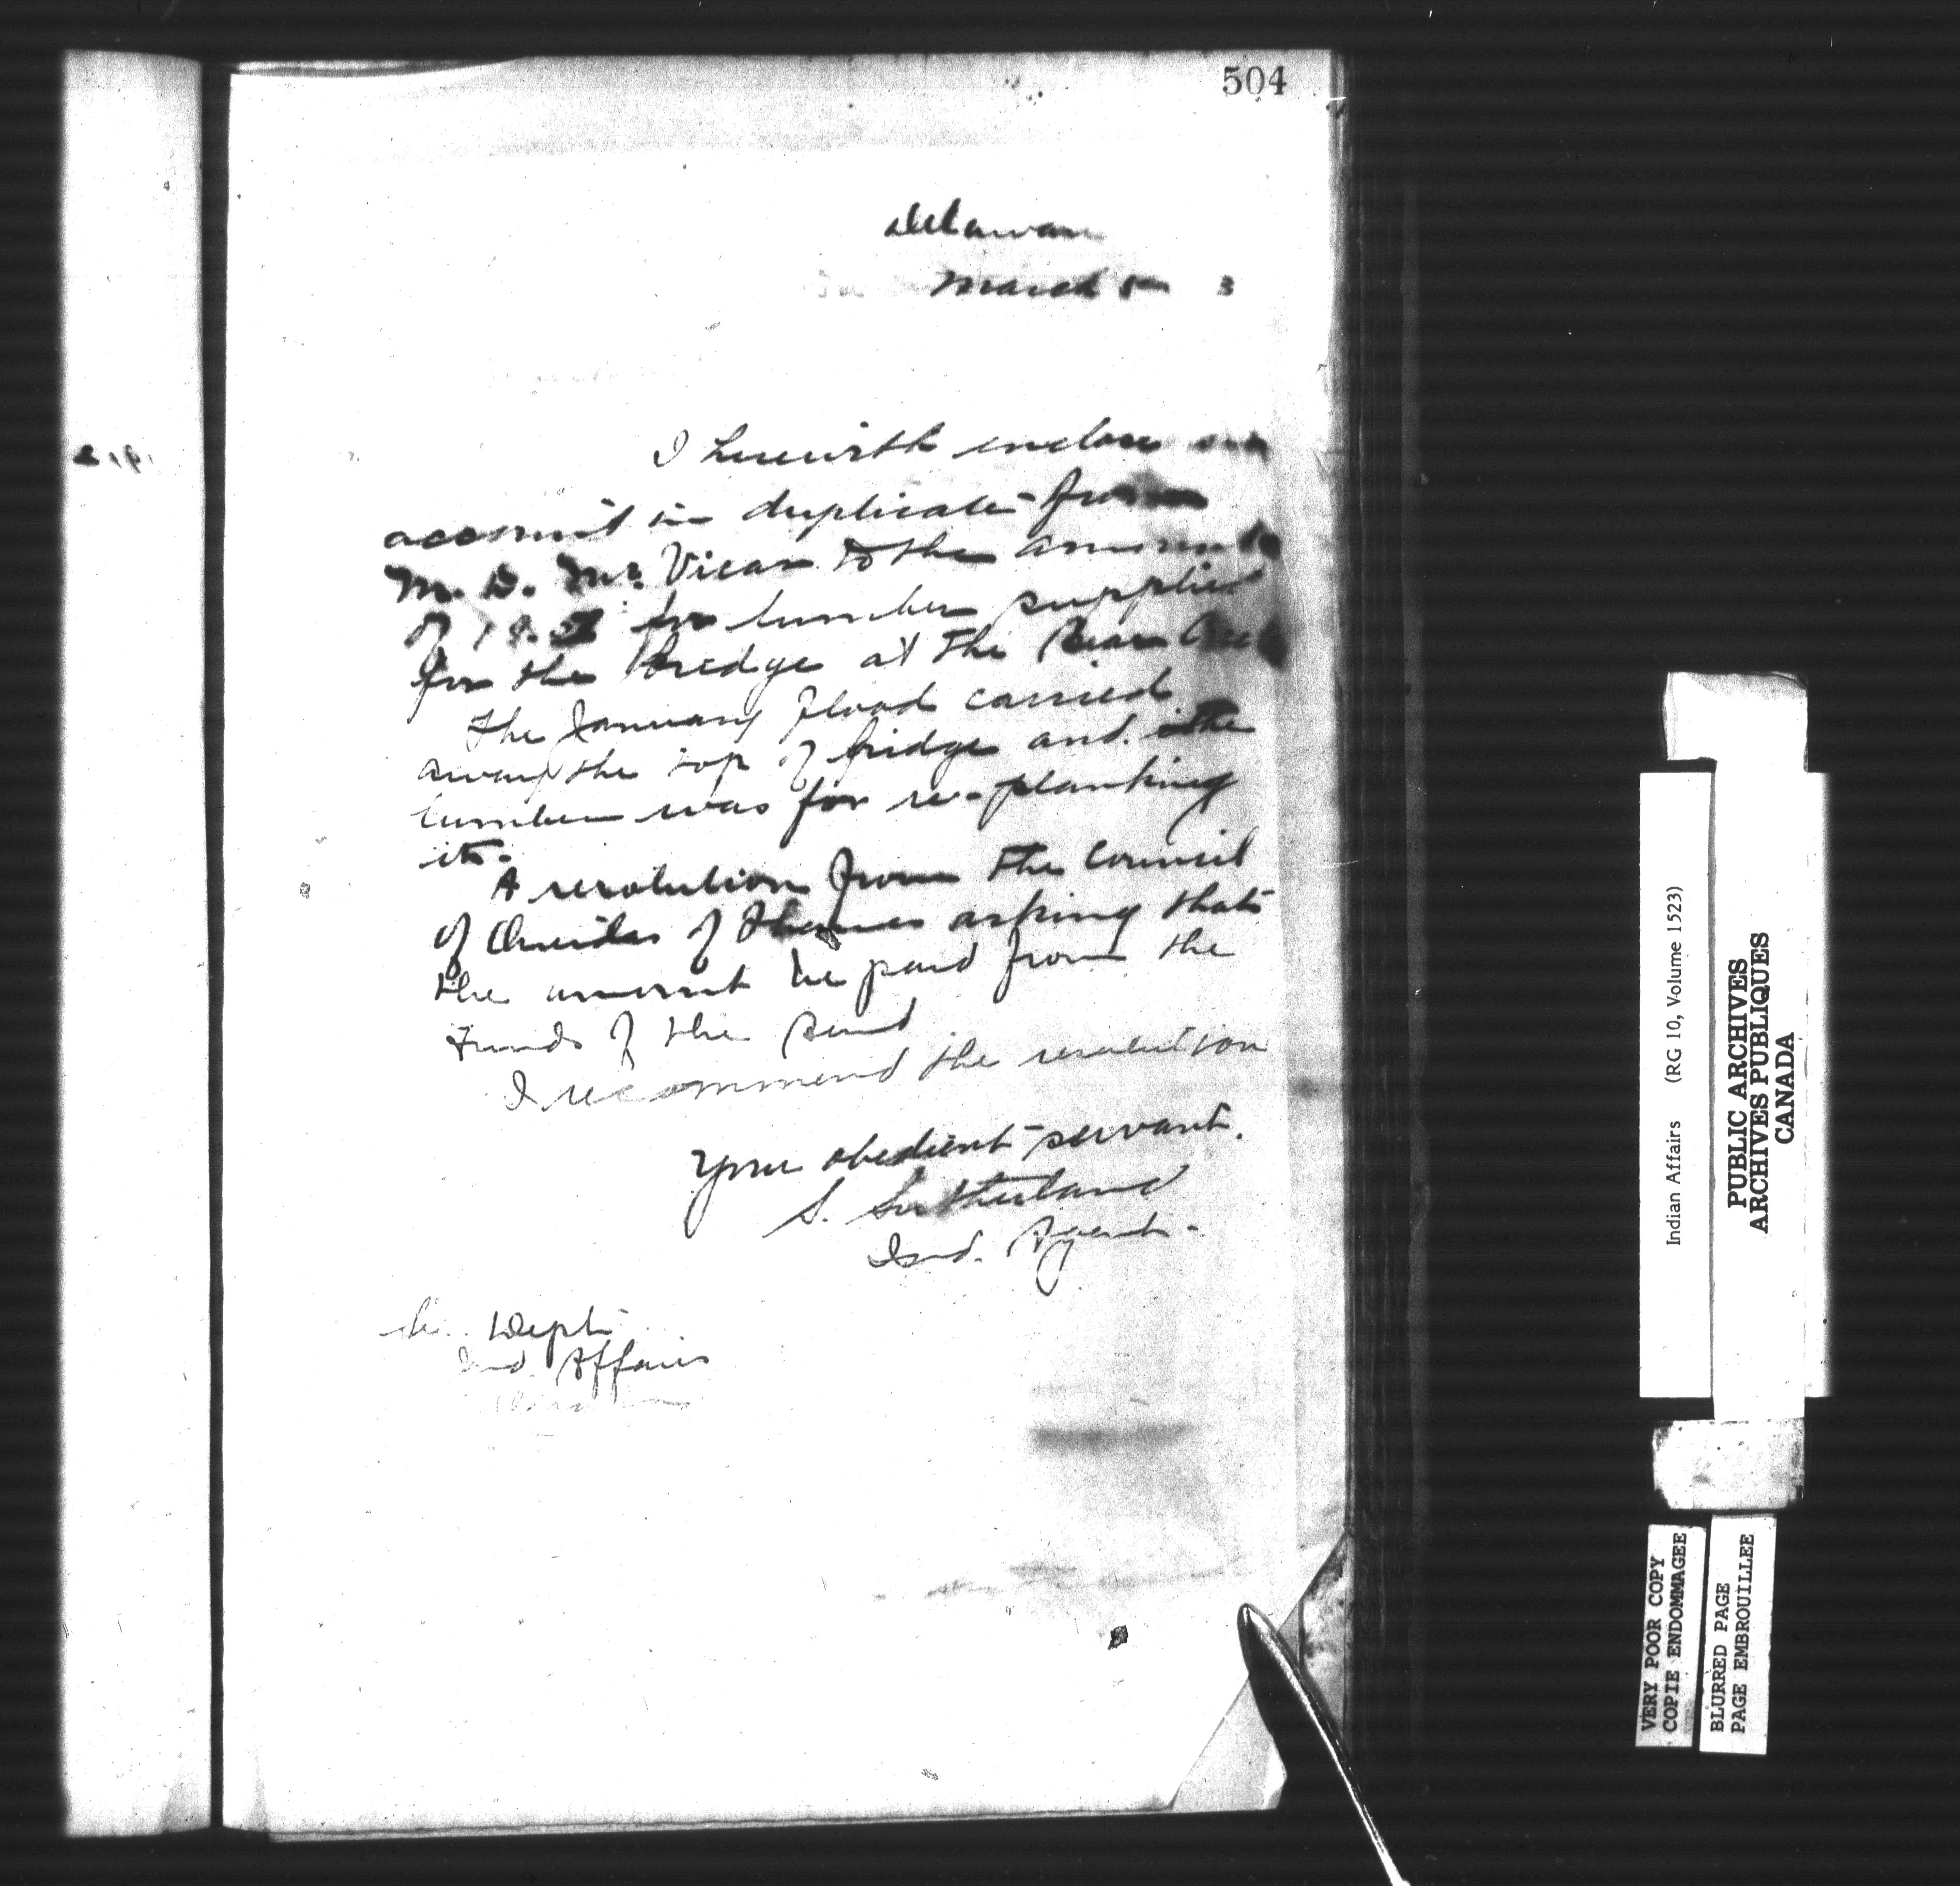 504
Delaware
March 5th 3
I herewith enclose an
account in duplicate from
M. D. McVicar to the amount
of for lumber supplied
for the Bridge at the Bear Creek
The January flood carried
away the top of bridge and the
lumber was for re-planking
it.
A resolution from the Council
of Oneidas of Thames asking that
the amount be paid from the
Funds of the Band
I recommend the resolution
Your obedient servant.
S. Sutherland
Ind. Agent.
Dept
Ind. Affairs
Indian Affairs (RG 10, Volume 1523)
PUBLIC ARCHIVES
ARCHIVES PUBLIQUES
CANADA
VERY POOR COPY
COPIE ENDOMMAGEE
BLURRED PAGE
PAGE EMBROUILLEE